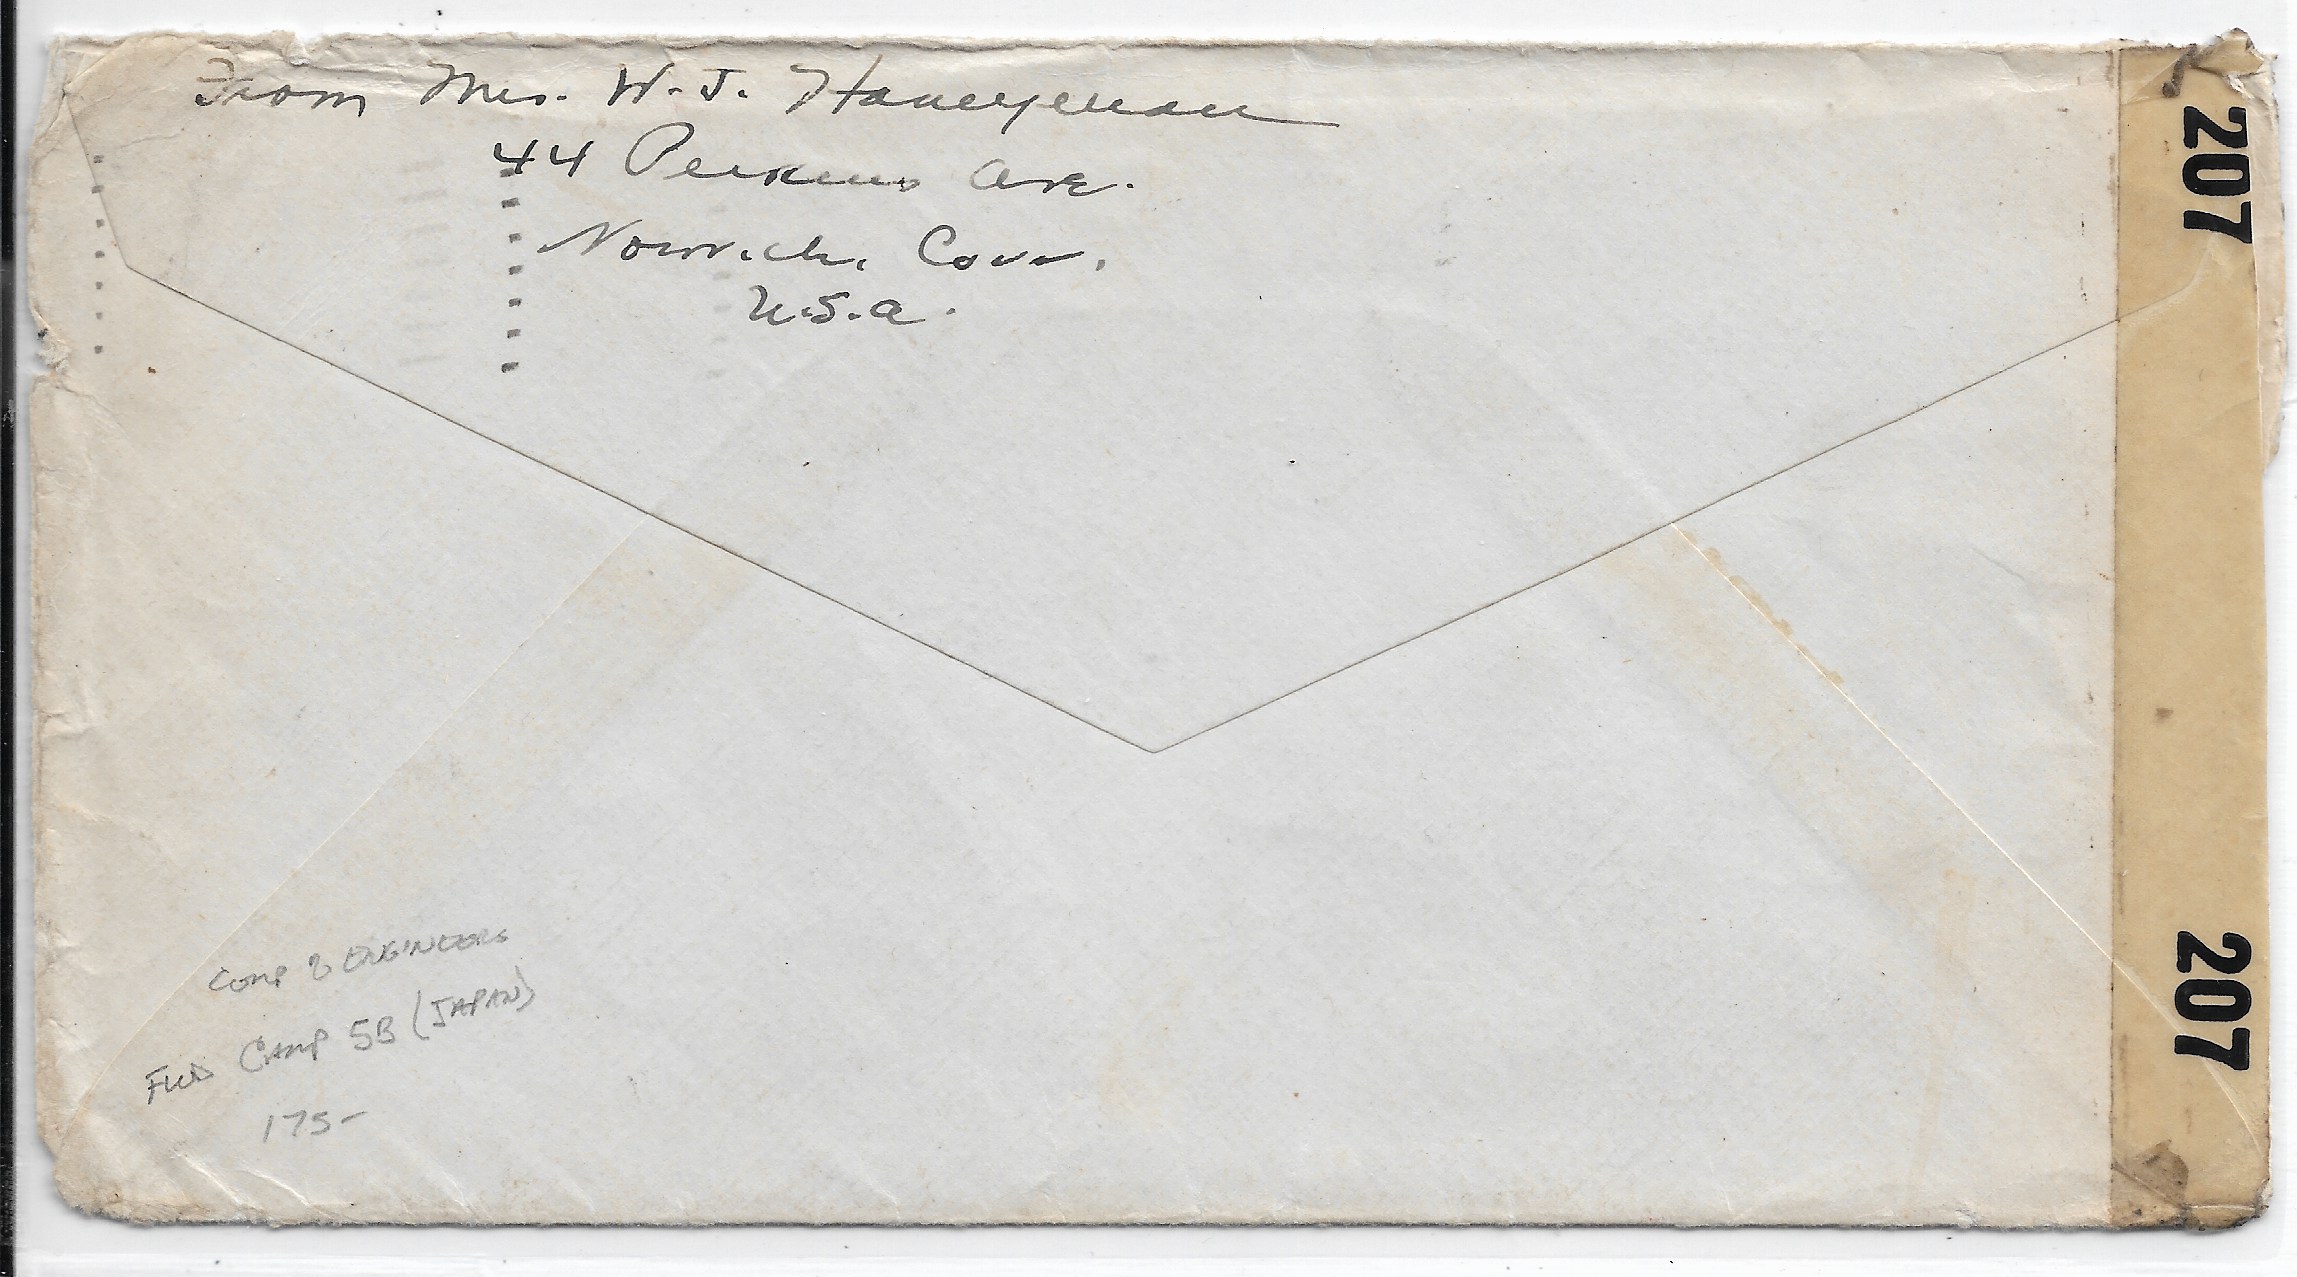 From Mrs. W. J. Honeyman
44 Perkins Ave.
Norwich, Conn.
U.S.A.
207
207
COMP 8 ENGINEERS
CAMP 5B (JAPAN)
175-